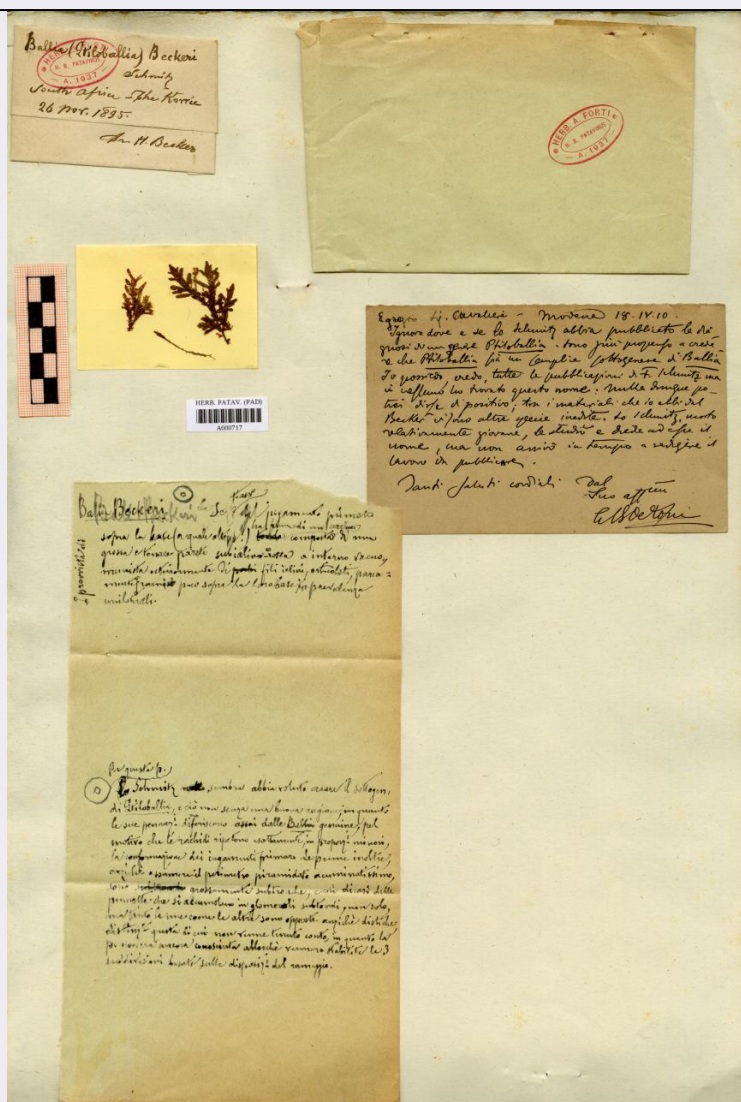 Ballia (Ptiloballia) Beckeri
HERB. A. FORTI
H. B. PATAVINUS
A. 1937
Schmitz
South Africa - The Kowie
26 Nov. 1895.
Dr. H. Becker
HERB. A. FORTI
H. B. PATAVINUS
A. 1937
Egregio Sig. Cavaliere - Modena 18.IV.10.
Ignoro dove e se lo Schmitz abbia pubblicato la dia
gnosi di un genere Ptiloballia. Sono più propenso a crede
re che Ptiloballia sia un semplice sottogenere di Ballia
Io possiedo, credo, tutte le pubblicazioni di F. Schmitz ma
in nessuna ho trovato questo nome. Nulla dunque po-
trei dirle di positivo; tra i materiali che io ebbi dal
Becker vi sono altre specie inedite. Lo Schmitz, morto
relativamente giovane, le studiò e diede ad esse il
nome, ma non arrivò in tempo a redigere il
lavoro da pubblicare.
Tanti saluti cordiali Dal
Suo affmo
GBDeToni
HERB. PATAV. (PAD)
A000717
Ballia Beckeri
sopra la base composta di una
grossa e tenace parete a interno vacuo,
munita esternamente di fili articolati,
poco sopra la in prevalenza
unilaterali.
Per questa p.
Lo Schmitz sembra abbia voluto creare il sottogen.
di Ptiloballia, e ciò non senza una buona ragione, in quanto
le sue differiscono assai dalle Ballia genuine, pel
motivo che le rachidi ripetono esattamente, in proporz. minori,
la conformazione dei jugamenti primari. Le penne inoltre,
anzichè assumere il perimetro piramidato acuminatissimo,
sono grossamente
pennette che si accumulano in glomeruli subtondi, non solo,
ma tanto le une come le altre sono opposte anzichè distiche,
distinz. questa di cui non venne tenuto conto, in quanto la
sp. non era ancora conosciuta allorchè vennero stabilite le 3
suddivisioni basate sulla disposiz. del rameggio.